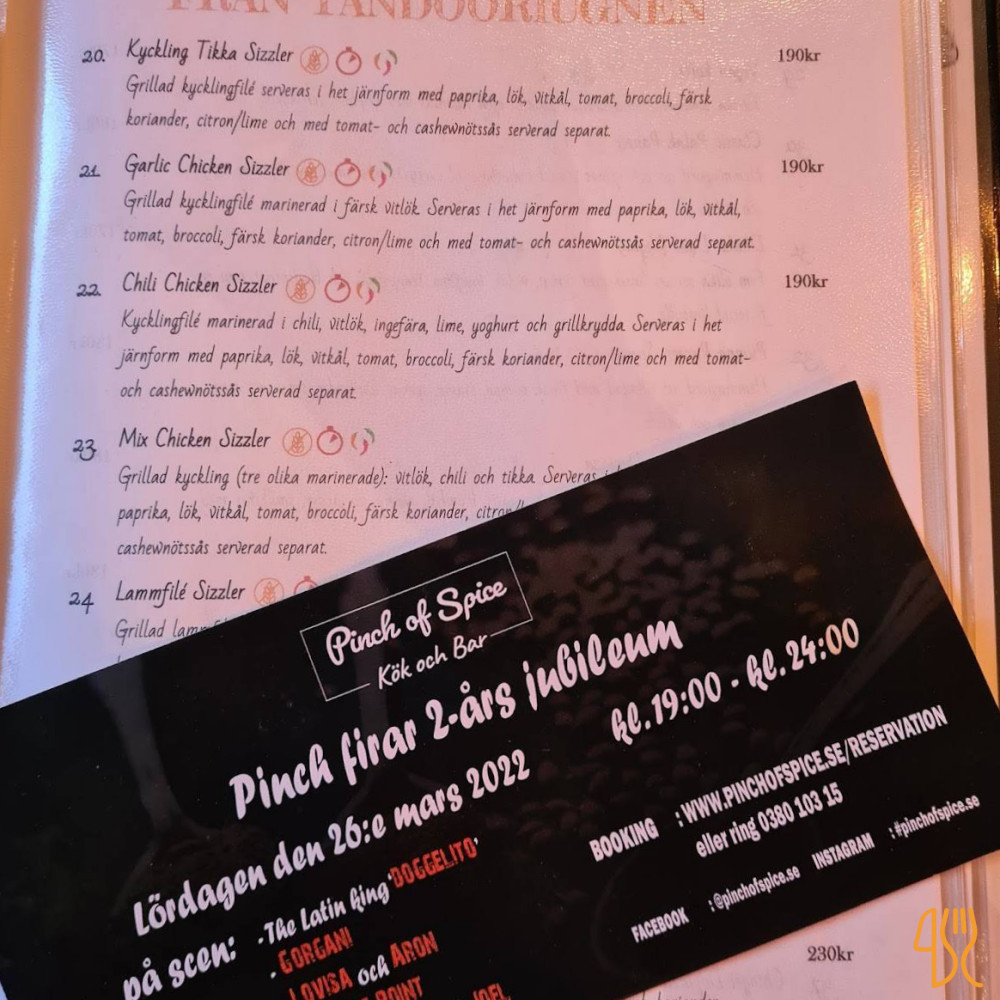 FRÅN TANDOORIUGNEN
20. Kyckling Tikka Sizzler 190kr
Grillad kycklingfilé serveras i het järnform med paprika, lök, vitkål, tomat, broccoli, färsk
koriander, citron/lime och med tomat- och cashewnötssås serverad separat.
21. Garlic Chicken Sizzler 190kr
Grillad kycklingfilé marinerad i färsk vitlök. Serveras i het järnform med paprika, lök, vitkål,
tomat, broccoli, färsk koriander, citron/lime och med tomat- och cashewnötssås serverad separat.
22. Chili Chicken Sizzler 190kr
Kycklingfilé marinerad i chili, vitlök, ingefära, lime, yoghurt och grillkrydda. Serveras i het
järnform med paprika, lök, vitkål, tomat, broccoli, färsk koriander, citron/lime och med tomat-
och cashewnötssås serverad separat.
23. Mix Chicken Sizzler
Grillad kyckling (tre olika marinerade): vitlök, chili och tikka. Serveras
paprika, lök, vitkål, tomat, broccoli, färsk koriander,
cashewnötssås serverad separat.
24 Lammfilé Sizzler
Grillad
Pinch of Spice
Kök och Bar
Pinch firar 2-års jubileum
Lördagen den 26:e mars 2022 kl.19:00 - kl.24:00
på scen: •The Latin king 'DOGGELITO'
• GORGANI
LOVISA och ARON
POINT
JOEL
BOOKING : WWW.PINCHOFSPICE.SE/RESERVATION
eller ring 0380 103 15
FACEBOOK : @pinchofspice.se INSTAGRAM : #pinchofspice.se
230kr